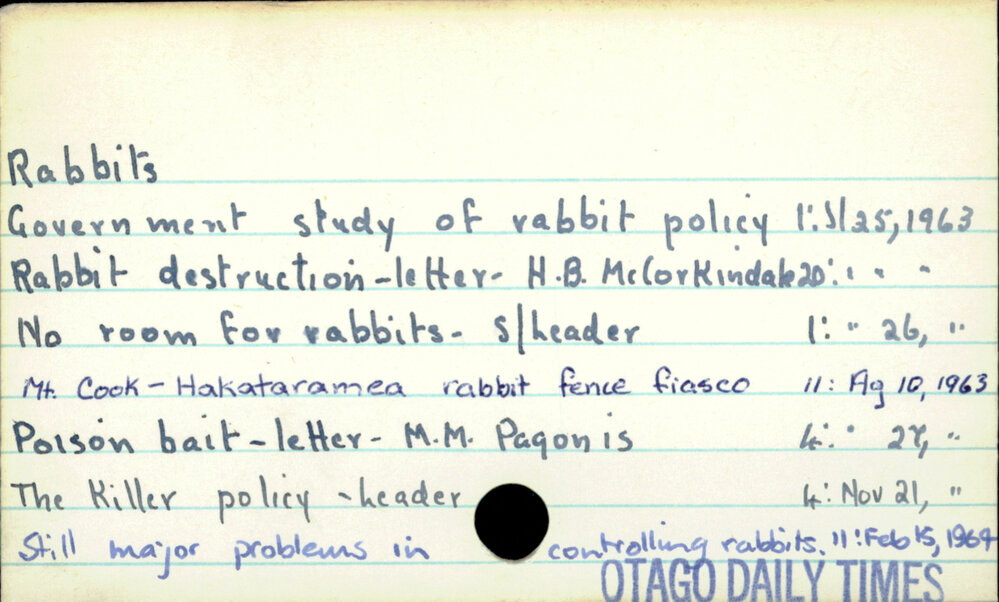 Rabbits
Government study of rabbit policy 1: Jl 25, 1963
Rabbit destruction - letter - H.B. McCorKindale 20: " " "
No room for rabbits - s/header 1: " 26, "
Mt. Cook - Hakataramea rabbit fence fiasco 11: Ag 10, 1963
Poison bait - letter - M.M. Pagonis 4: " 27, "
The Killer policy - header 4: Nov 21, "
Still major problems in controlling rabbits. 11: Feb 15, 1964
OTAGO DAILY TIMES